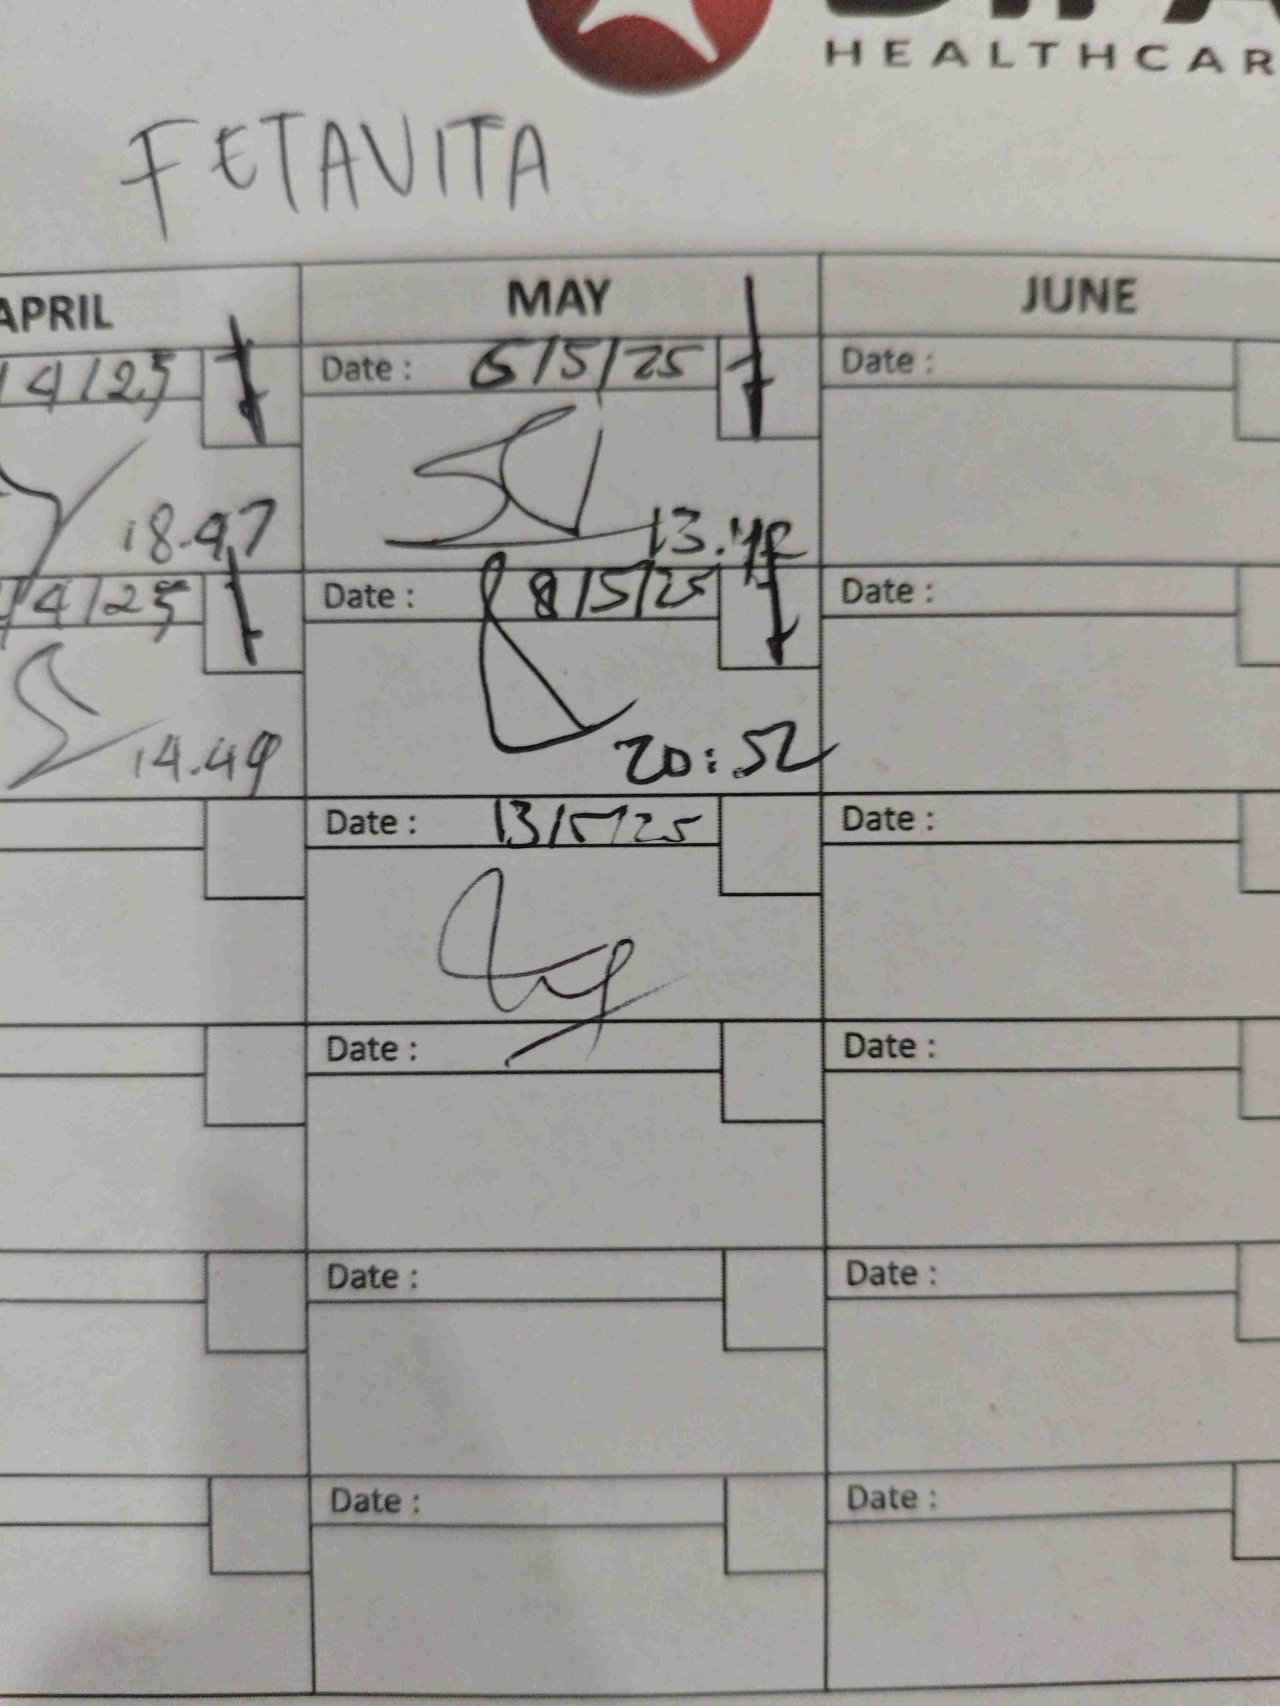 HEALTHCAR
FETAVITA
APRIL MAY JUNE
/4/25 Date : 6/5/25 Date :
18.47
/4/25 Date : 8/5/25 Date :
14.49 20:52
Date : 13/5/25 Date :
Date : Date :
Date : Date :
Date : Date :